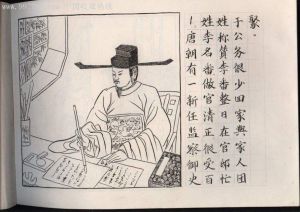 1唐朝有一新任監察御史
姓李名畬做官清正很受百
姓称贊李畬整日在官邸忙
于公务很少回家與家人团
聚。